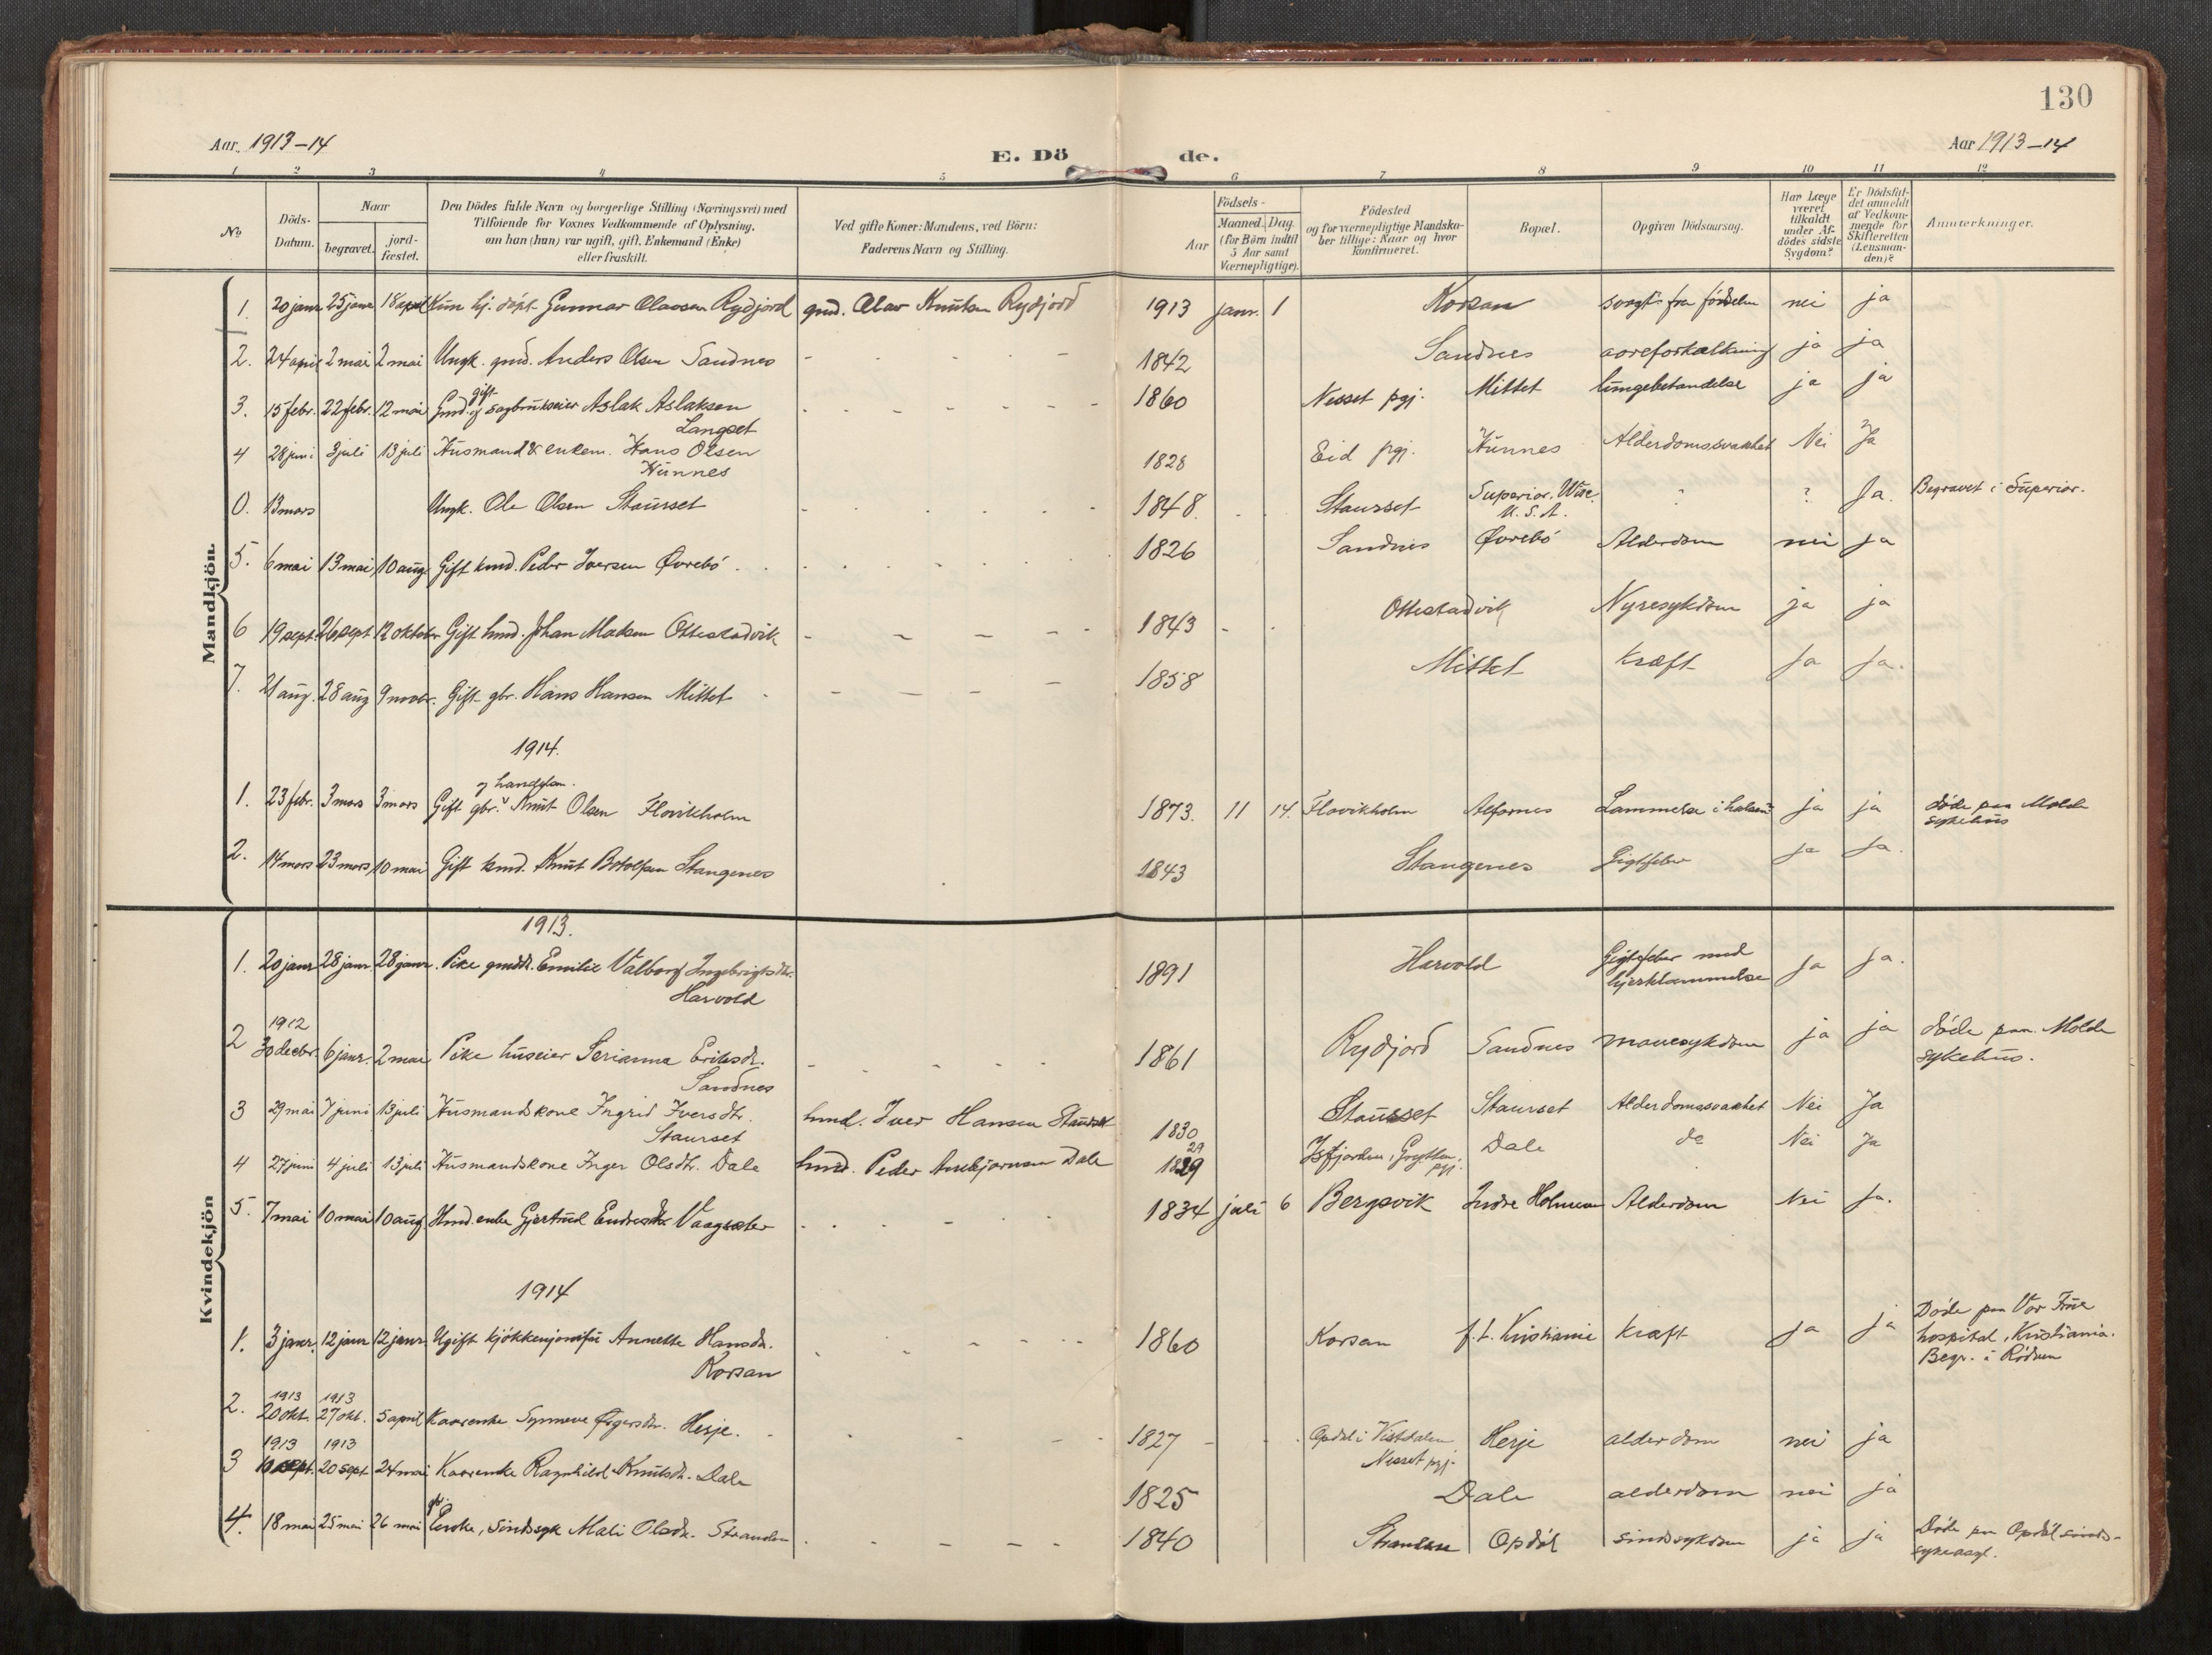 130
Aar. 1913–14
E. Dö de.
Aar 1913–14
1 2 3 4 5 6 7 8 9 10 11 12
No
Döds-Datum.
Naar
begravet.
jord-fæstet.
Den Dödes fulde Navn og borgerlige Stilling (Næringsvei) med
Tilföiende for Voxnes Vedkommende af Oplysning,
om han (hun) var ugift, gift, Enkemand (Enke)
eller fraskilt.
Ved gifte Koner: Mandens, ved Börn:
Faderens Navn og Stilling.
Födsels-
Aar
Maaned. Dag.
(for Börn indtil
5 Aar samt
Værnepligtige).
Födested
og for værnepligtige Mandska-
ber tillige: Naar og hvor
konfirmeret.
Bopæl.
Opgiven Dödsaarsag.
Har Læge
været
tilkaldt
under Af-
dödes sidste
Sygdom?
Er Dödsfal-
det anmeldt
af Vedkom-
mende for
Skifteretten
(Lensman-
den)?
Anmærkninger.
Mandkjön.
1. 20 janr 25 janr 18 april Kun hj. døpt Gunnar Olavsen Rydjord gmd. Olav Knutsen Rydjord 1913 janr. 1 Korsan svagt fra fødselen nei ja
2. 24 april 2 mai 2 mai Ungk. gmd. Anders Olsen Sandnes 1842 Sandnes aareforkalkning ja ja
gift
3. 15 febr. 22 febr. 12 mai Gmd. og sagbrukseier Aslak Aslaksen 1860 Nesset pgj. Mittet lungebetændelse ja ja
Langset
4 28 juni 3 juli 13 juli Husmand & enkem. Hans Olsen 1828 Eid pgj. Hünnes Alderdomssvakhet Nei Ja
Hünnes
0. 13 mars Ungk. Ole Olsen Staurset 1848. Staurset Superior. Wisc. ? Ja. Begravet i Superior.
U.S.A.
5. 6 mai 13 mai 10 aug. Gift kmd. Peder Iversen Øvrebö 1826 Sandnes Øvrebö Alderdom nei ja
6 19 sept 26 sept 12 oktober Gift hmd. Johan Madsen Ottestadvik 1843 Ottestadvik Nyresykdom ja ja
7. 21 aug. 28 aug 9 novbr. Gift gbr. Hans Hansen Mittet 1858 Mittet kræft Ja Ja.
1914.
og handelsm.
1. 23 febr. 3 mars 3 mars Gift gbr. Knut Olsen Flovikholm 1873. 11 14. Flovikholm Alfarnes Lammelse i halsen ja ja døde paa Molde
sykehus
2. 14 mars 23 mars 10 mai Gift kmd. Knut Botolfsen Stangenes 1843 Stangenes Gigtfeber ja Ja.
Kvindekjön
1913.
1. 20 janr 28 janr 28 janr. Pike gmdtr. Emilie Valborg Ingebrigtsdtr. 1891 Harvold Gigtfeber med Ja Ja.
Harvold hjertelammelse
1912
2 30 decbr. 6 janr. 2 mai Pike huseier Serianna Eriksdt. 1861 Rydjord Sandnes mavesykdom ja ja døde paa Molde
Sandnes sykehus.
3 29 mai 7 juni 13 juli Husmandskone Ingrid Iversdtr. hmd. Iver Hansen Staurset 1830 Staurset Staurset Alderdomssvakhet Nei Ja
Staurset
29
4 27 juni 4 juli 13 juli Husmandskone Inger Olsdtr. Dale hmd. Peder Arnbjørnsen Dale 1829 Isfjorden, Grytten Dale do Nei Ja
pgj.
5. 7 mai 10 mai 10 aug Hmd. enke Gjertrud Endresdtr Vaagsæter 1834 juli 6 Bergsvik Indre Holmem Alderdom Nei Ja.
1914
1. 3 janr. 12 janr 12 janr. Ugift kjøkkenjomfru Annette Hansdr. 1860 Korsan f.t. Kristiania kræft Ja ja Døde paa Vor Frue
Korsan hospital, Kristiania.
Begr. i Rødven
1913 1913
2. 20 okt. 27 okt. 5 april Kaarenke Synneve Ørgersdtr. Herje. 1827 Opdøl i Vistdalen Herje alderdom nei ja
Nesset pgj.
1913 1913
3 sept. 20 sept 24 mai Kaarenke Ragnhild Knutsdtr. Dale 1825 Dale alderdom nei ja
4. 18 mai 25 mai 26 mai Enke, sindssyk Mali Olsdr. Stranden 1840 Opdøl sindssykdom ja ja Døde paa Opdøl sinds-
sykeasyl.